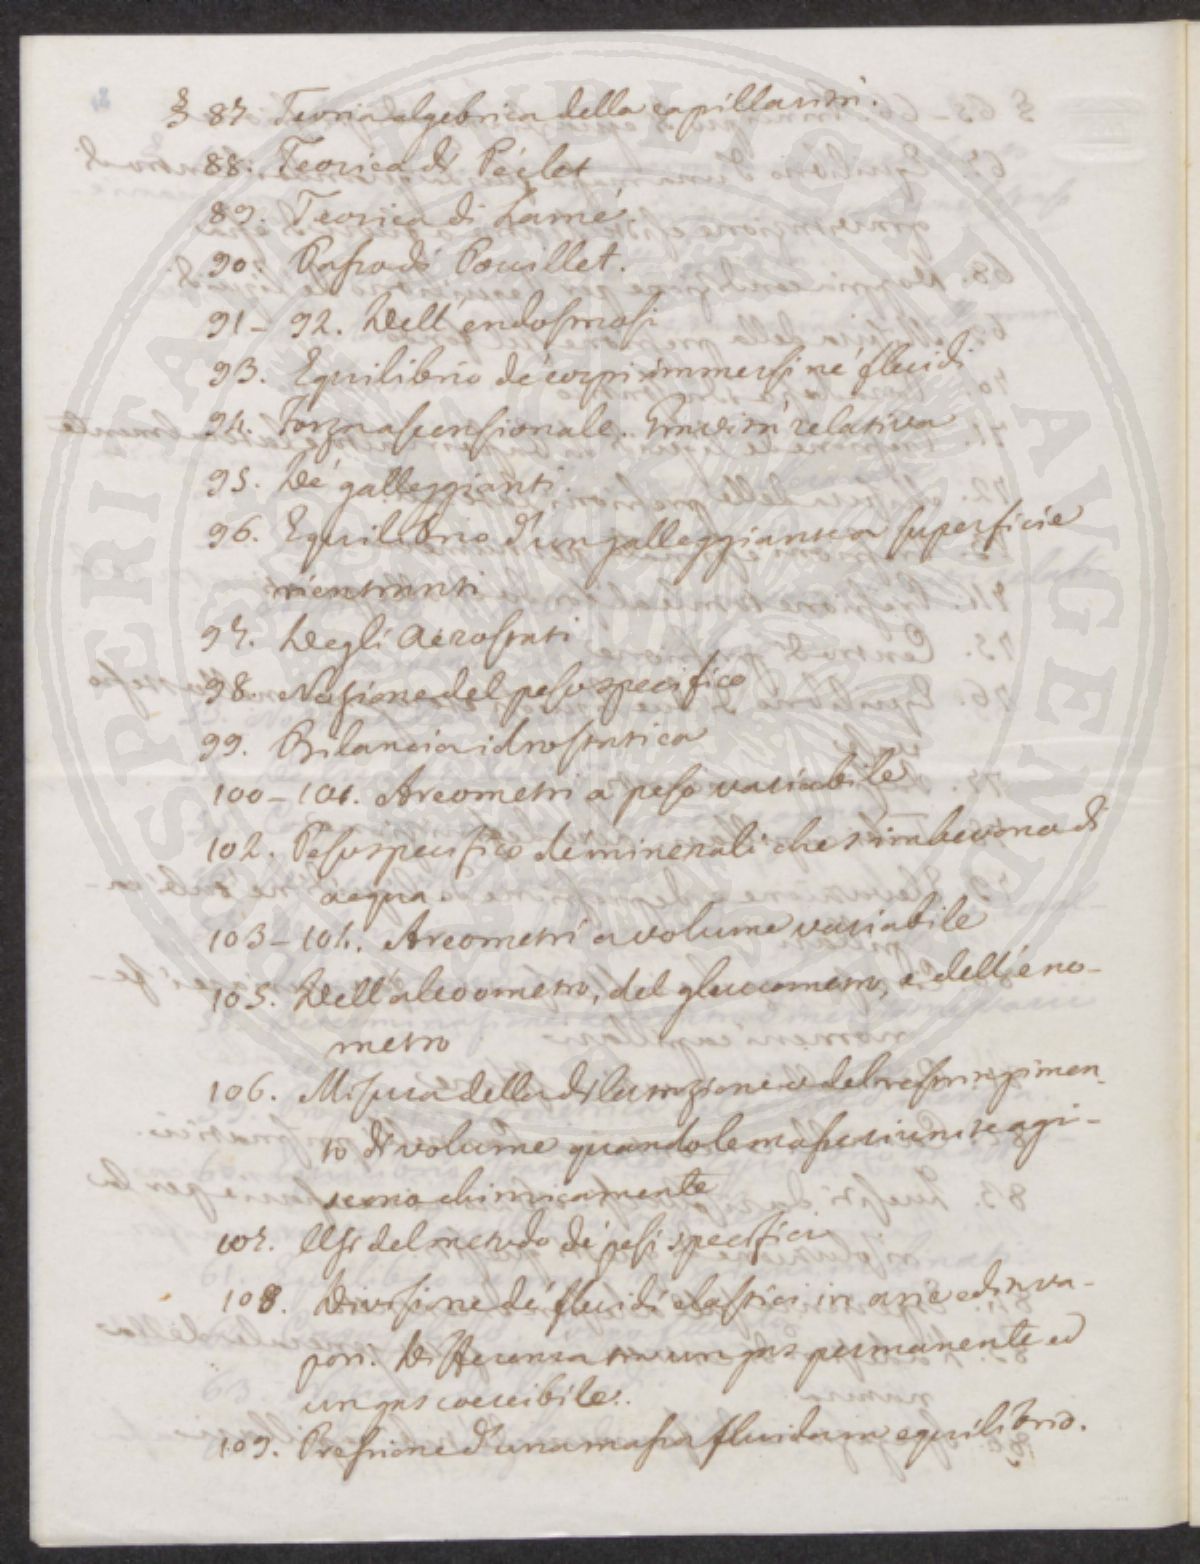 § 87. Teoria algebrica della capillarità.
88. Teorica di Péclet
89. Teorica di Lamé.
90. Passo di Pouillet.
91 – 92. Dell'endosmosi
93. Equilibrio de' corpi immersi ne' fluidi
94. Forza ascensionale. Gravità relativa
95. De' galleggianti.
96. Equilibrio d'un galleggiante a superficie
rientranti
97. Degli Aerostati
98. Nozione del peso specifico
99. Bilancia idrostatica
100 – 101. Areometri a peso variabile
102. Peso specifico de' minerali che s'imbevono di
acqua
103 – 104. Areometri a volume variabile
105. Dell'alcoometro, del glucometro, e dell'eno-
metro
106. Misura della dilatazione e del restringimen-
to di volume quando le masse riunite agi-
scono chimicamente
107. Usi del metodo de' pesi specifici
108. Divisione de' fluidi elastici in arie ed in va-
pori. Differenza tra un gas permanente ed
un gas coercibile.
109. Pressione d'una massa fluida in equilibrio.
SPERITA PUBLICA AVGEMVS